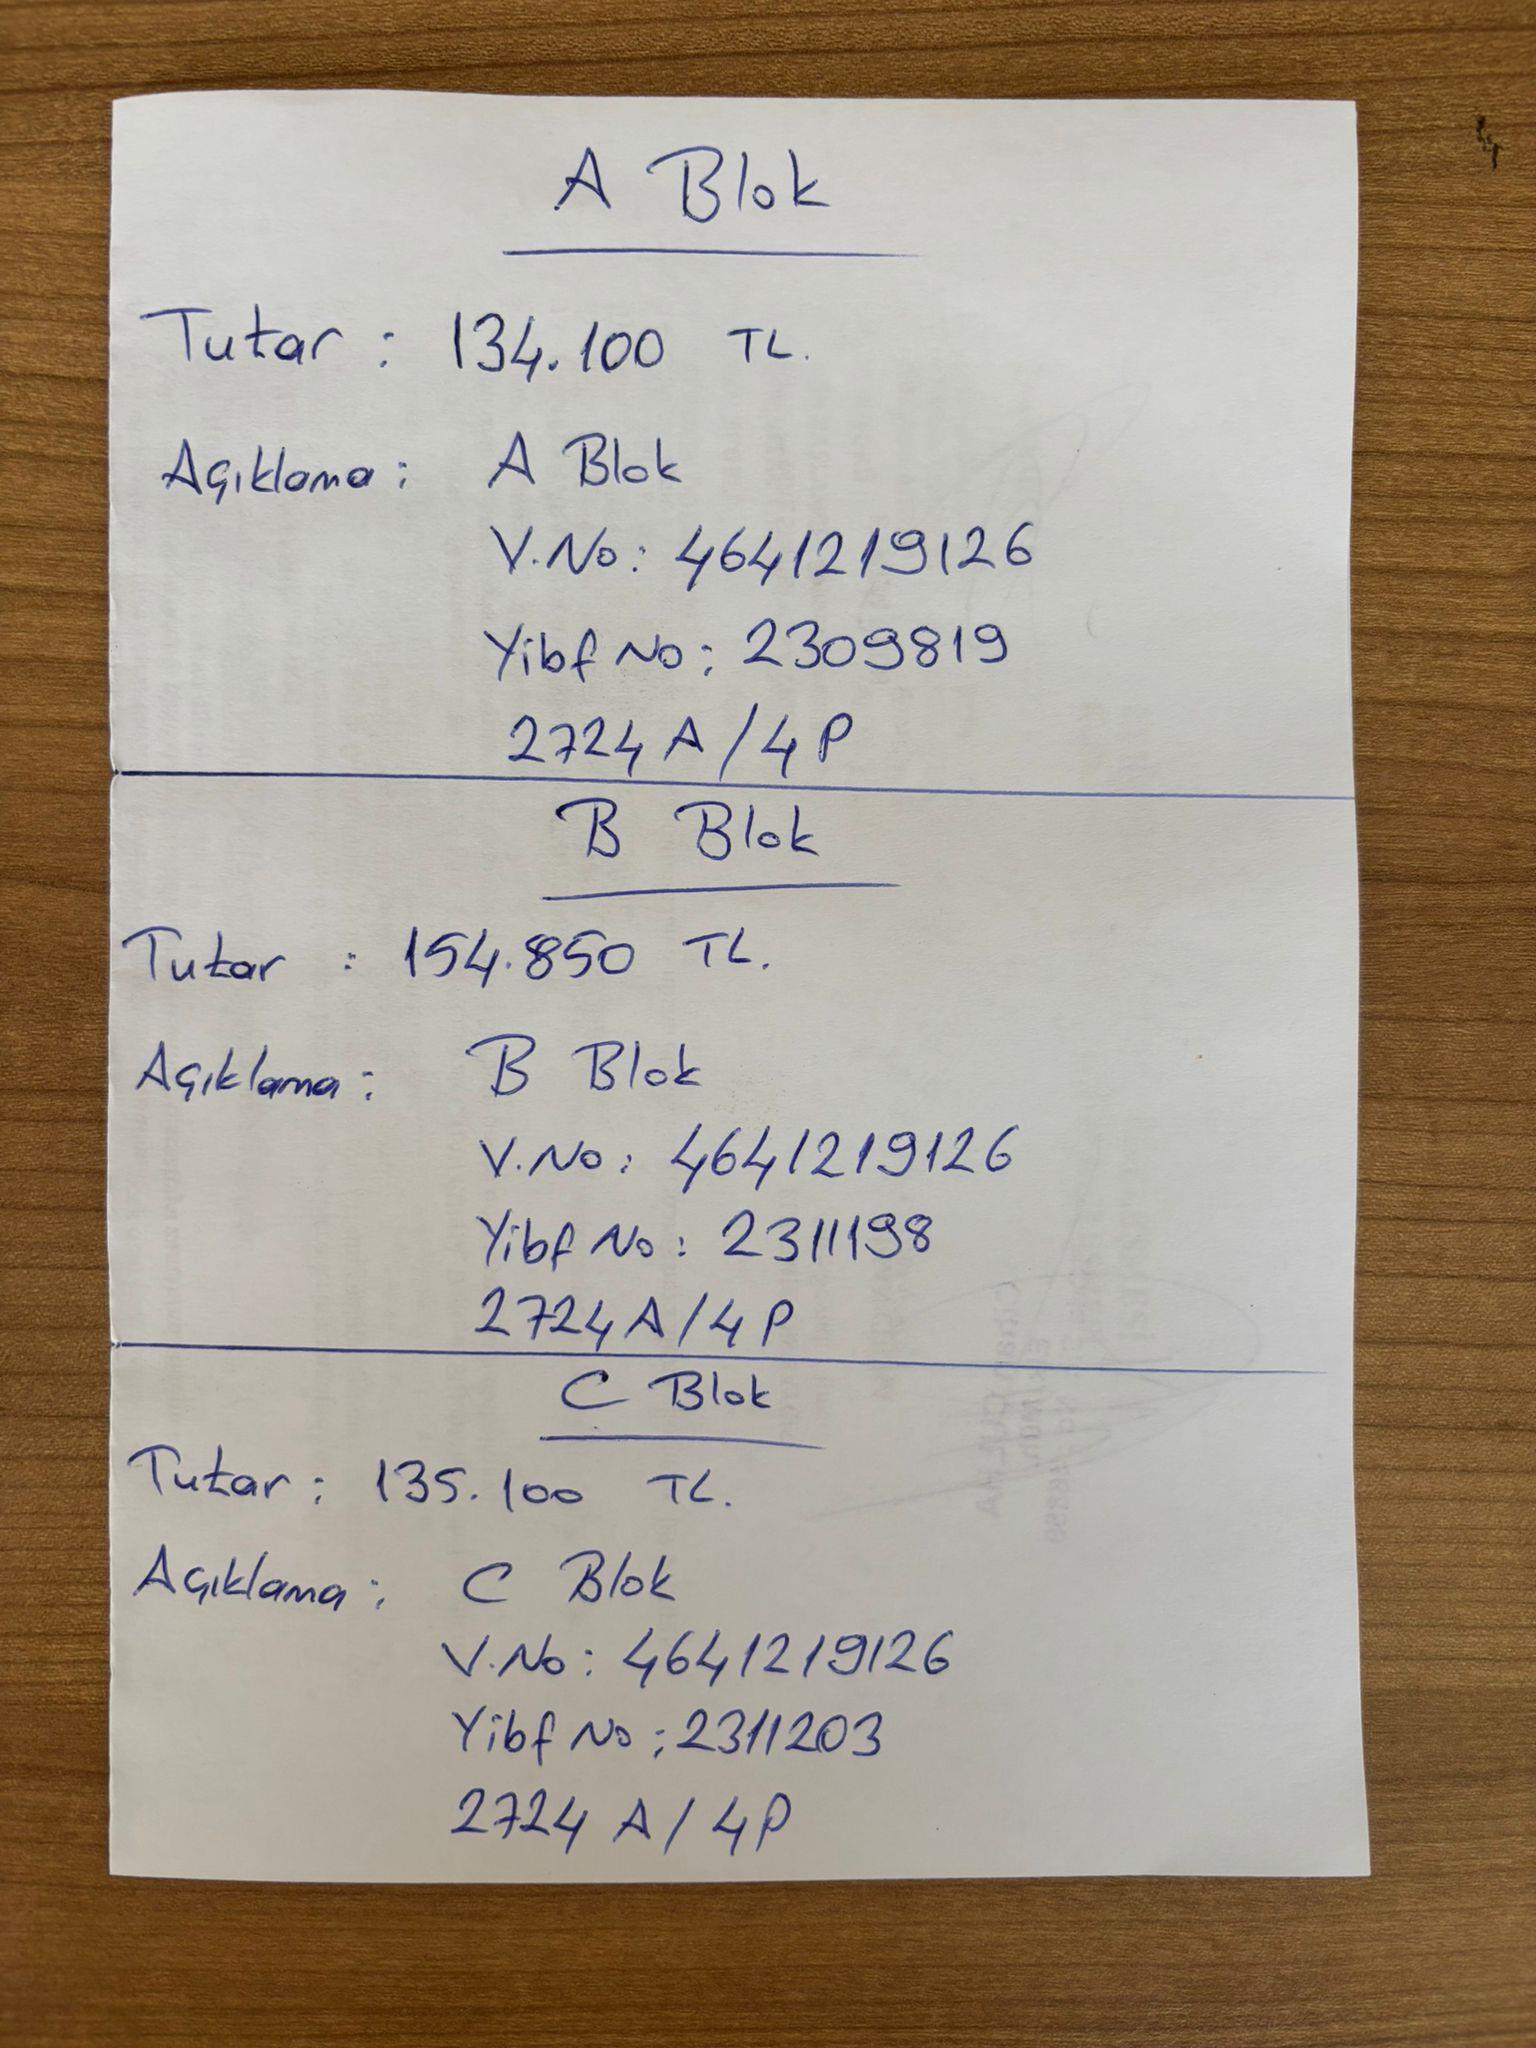 A Blok
Tutar : 134.100 TL.
Açıklama : A Blok
V.No: 4641219126
Yibf No: 2309819
2724 A / 4 P
B Blok
Tutar : 154.850 TL.
Açıklama : B Blok
V.No: 4641219126
Yibf No: 2311198
2724 A / 4 P
C Blok
Tutar : 135.100 TL.
Açıklama : C Blok
V.No: 4641219126
Yibf No: 2311203
2724 A / 4P